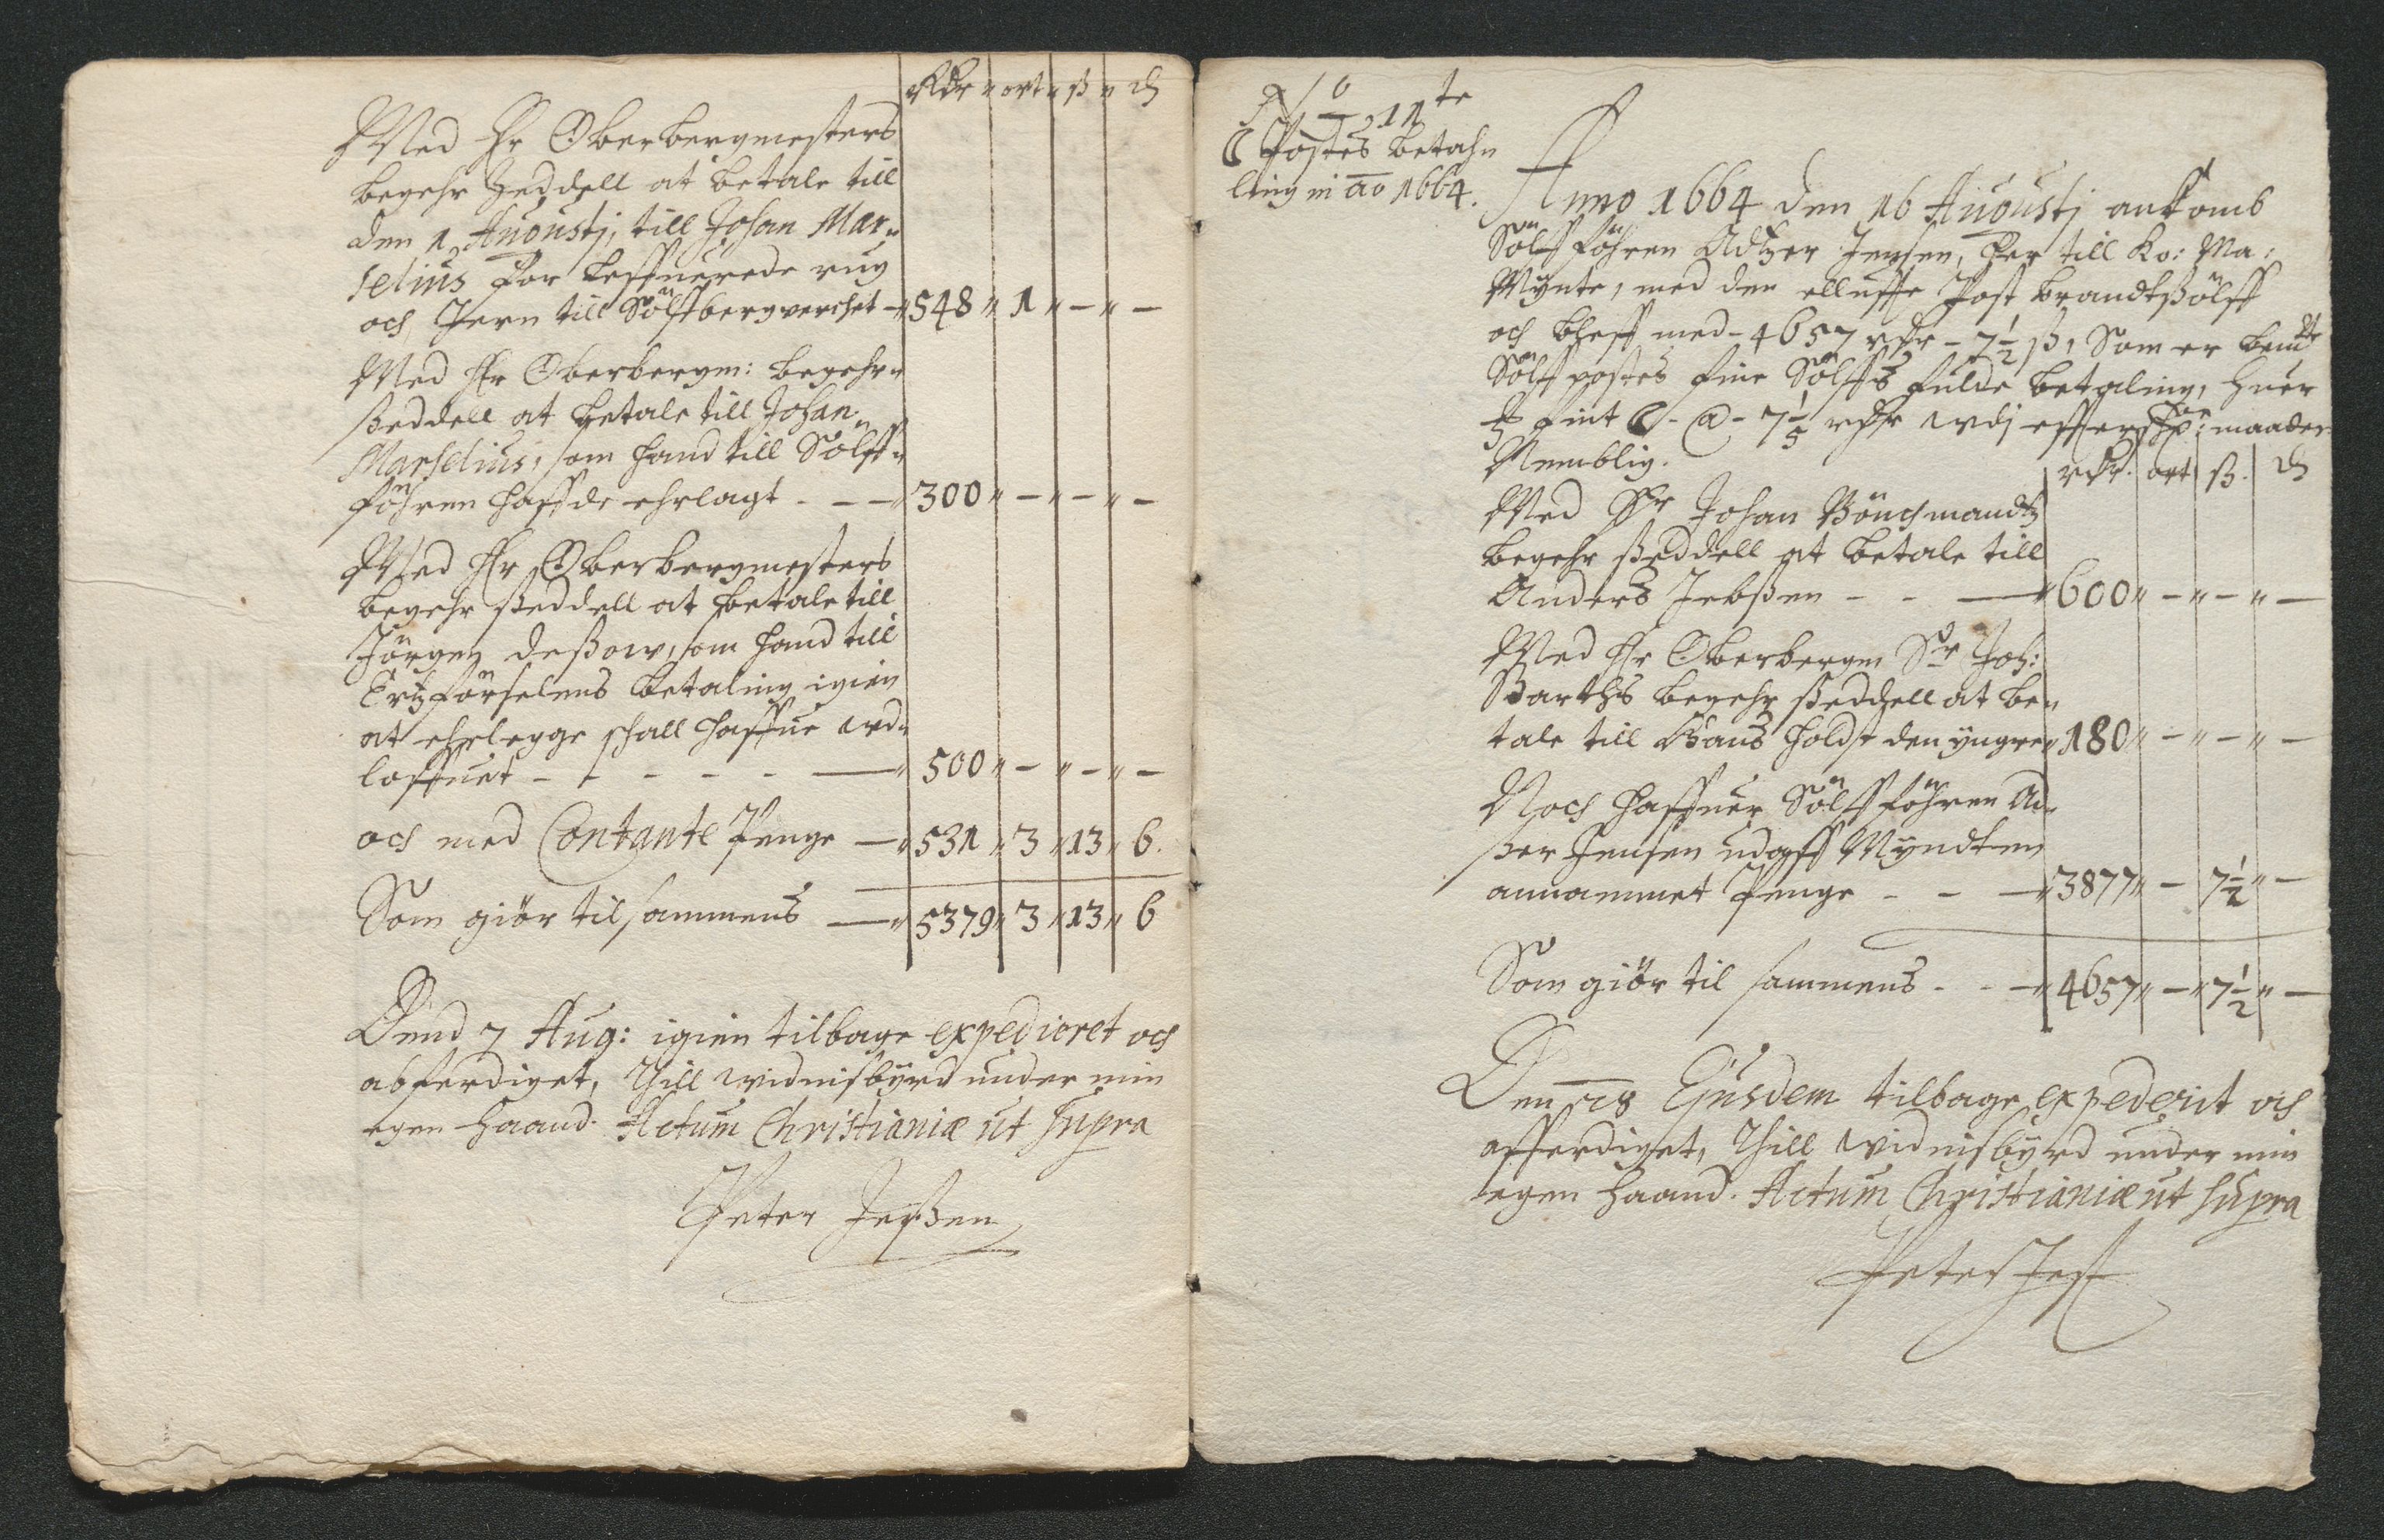 Rdr " ort " ß " ₰
Med Hr Oberbergmesters
begehr Zeddell at betale till
den 1 Augustj, till Johan Mar¬
selius for leffuerede rug
och Jern till Sölfbergverchet — " 548 " 1 " — " —
Med Hr Oberbergm: begehr¬
ßeddell at betale till Johan
Marselius, som hand till Sölff¬
föhren haffde ehrlagt - - — " 300 " — " — " —
Med Hr Oberbergmesters
begehr ßeddell at betale till
Jörgen Deßow, som hand till
Ertzförselens betaling igien
at ehrlegge schall haffue wd¬
loffuet - - - - - — " 500 " — " — " —
och med Contante Penge — " 531 " 3 " 13 " 6.
Som giör tilsammens — " 5379 " 3 " 13 " 6
Dend 7 Aug: igien tilbage expedieret och
abferdiget, Thill widnisbyrd under min
egen haand. Actum Christianiæ ut supra
Peter Jeßen
No 11te
Postes betahⁿ
ling in ao 1664.
Anno 1664 den 16 Augustj ankomb
Sölfföhren Adtzer Jensen, her till Ko: Ma:
Mynte, med den elluffte Post brandtßölff
och bleff med - 4657 rdr - 7½ ß, Som er bemdte
Sölffpostes fine Sölffs fulde betaling, huer
fint - @ - 7 1/5 rdr wdj effterschr: maader
Nemblig.
rdr. ort ß. ₰
Med Hr Johan Bönchmandtz
begehr ßeddell at betale till
Anders Jebßen - - — " 600 " — " — " —
Med Hr Oberbergm Sr Joh:
Barths begehr ßeddell at be¬
tale till Hans Holst den yngre " 180 " — " — " —
Noch haffuer Sölfföhren Ad¬
ßer Jensen udaff Myndten
annammet Penge - - — " 3877 " — 7½ " —
Som giör til sammens - - — " 4657 " — " 7½ " —
Den 18 Ejusdem tilbage expederit och
affferdiget, Thill widnisbyrd under min
egen haand. Actum Christianiæ ut supra
Peter Jeß